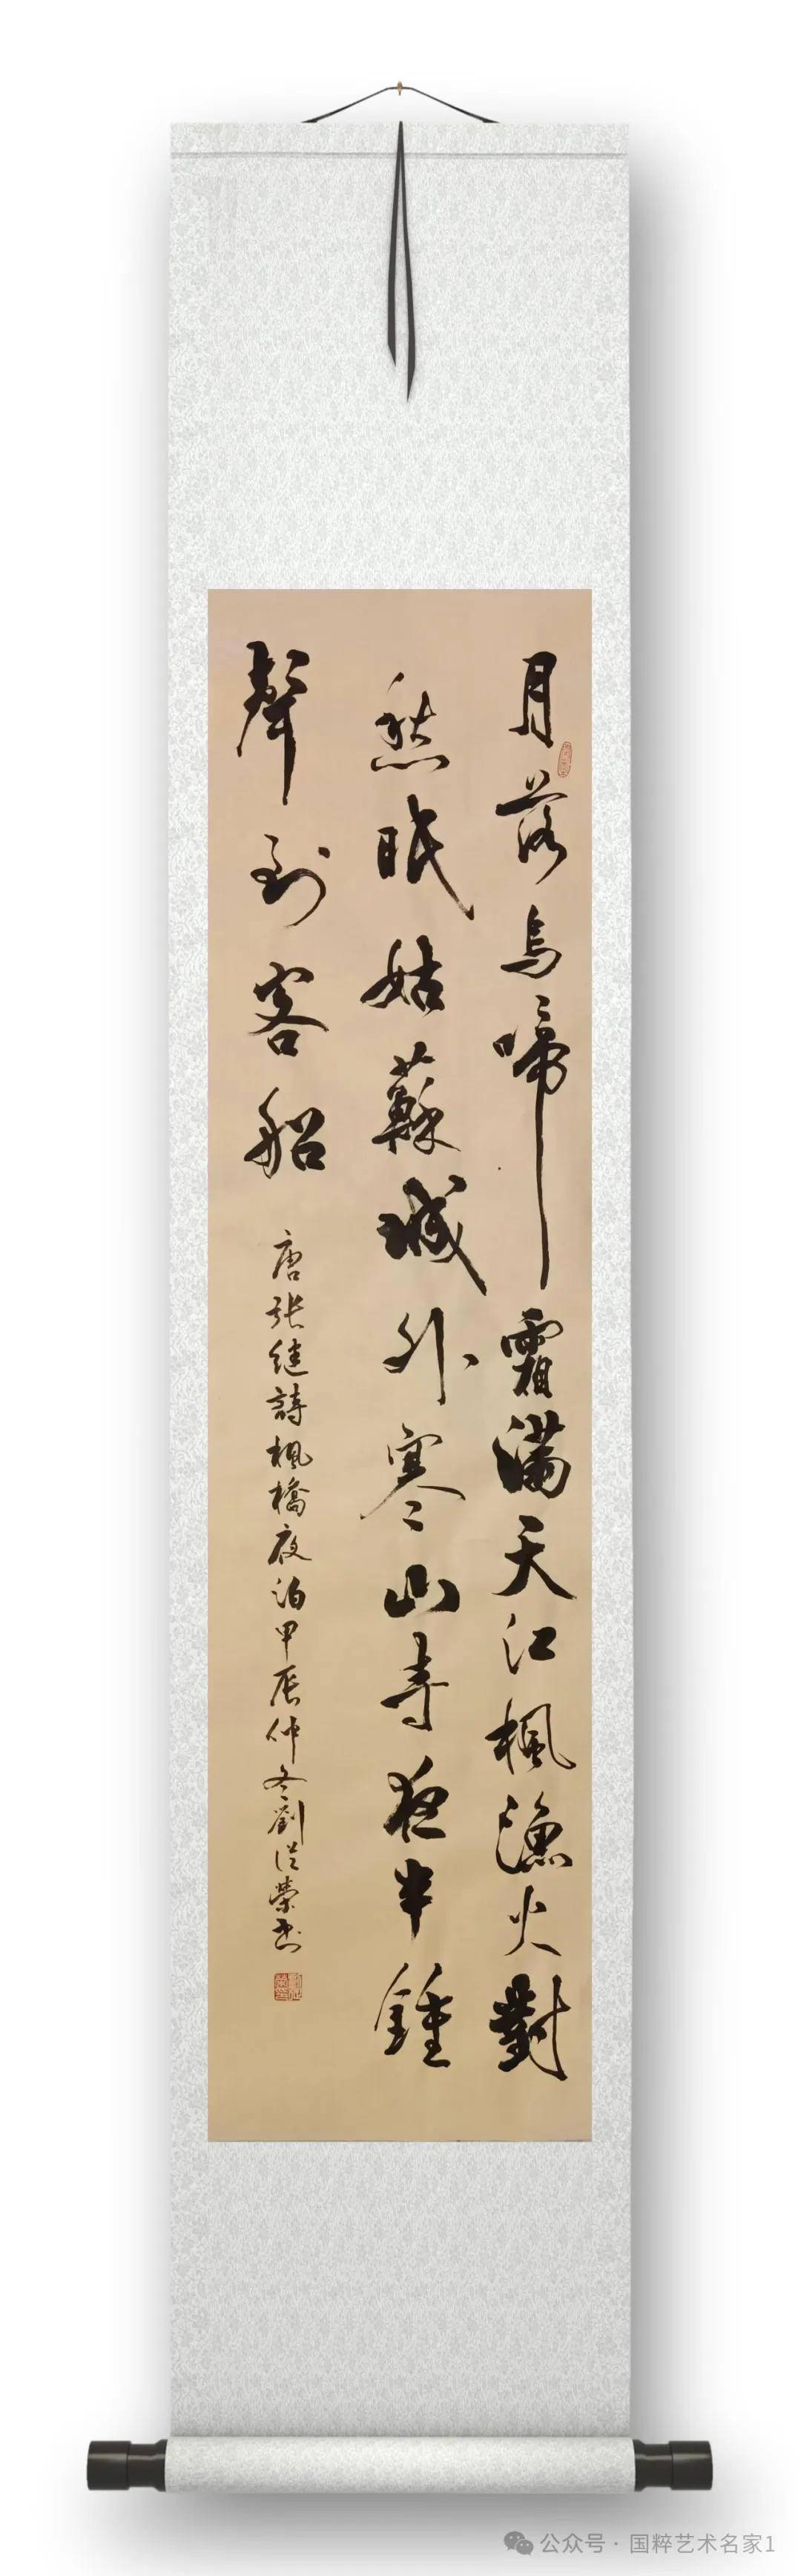 月落烏啼霜滿天江楓漁火對
愁眠姑蘇城外寒山寺夜半鍾
聲到客船
唐張继詩楓橋夜泊甲辰仲冬劉從榮书
公众号·国粹艺术名家1